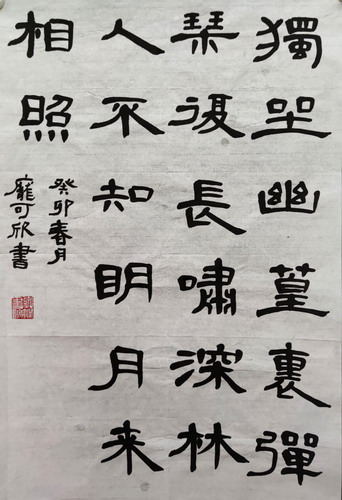 獨坐幽篁裏彈
琹復長嘯深林
人不知明月来
相照
癸卯春月
龐可欣書